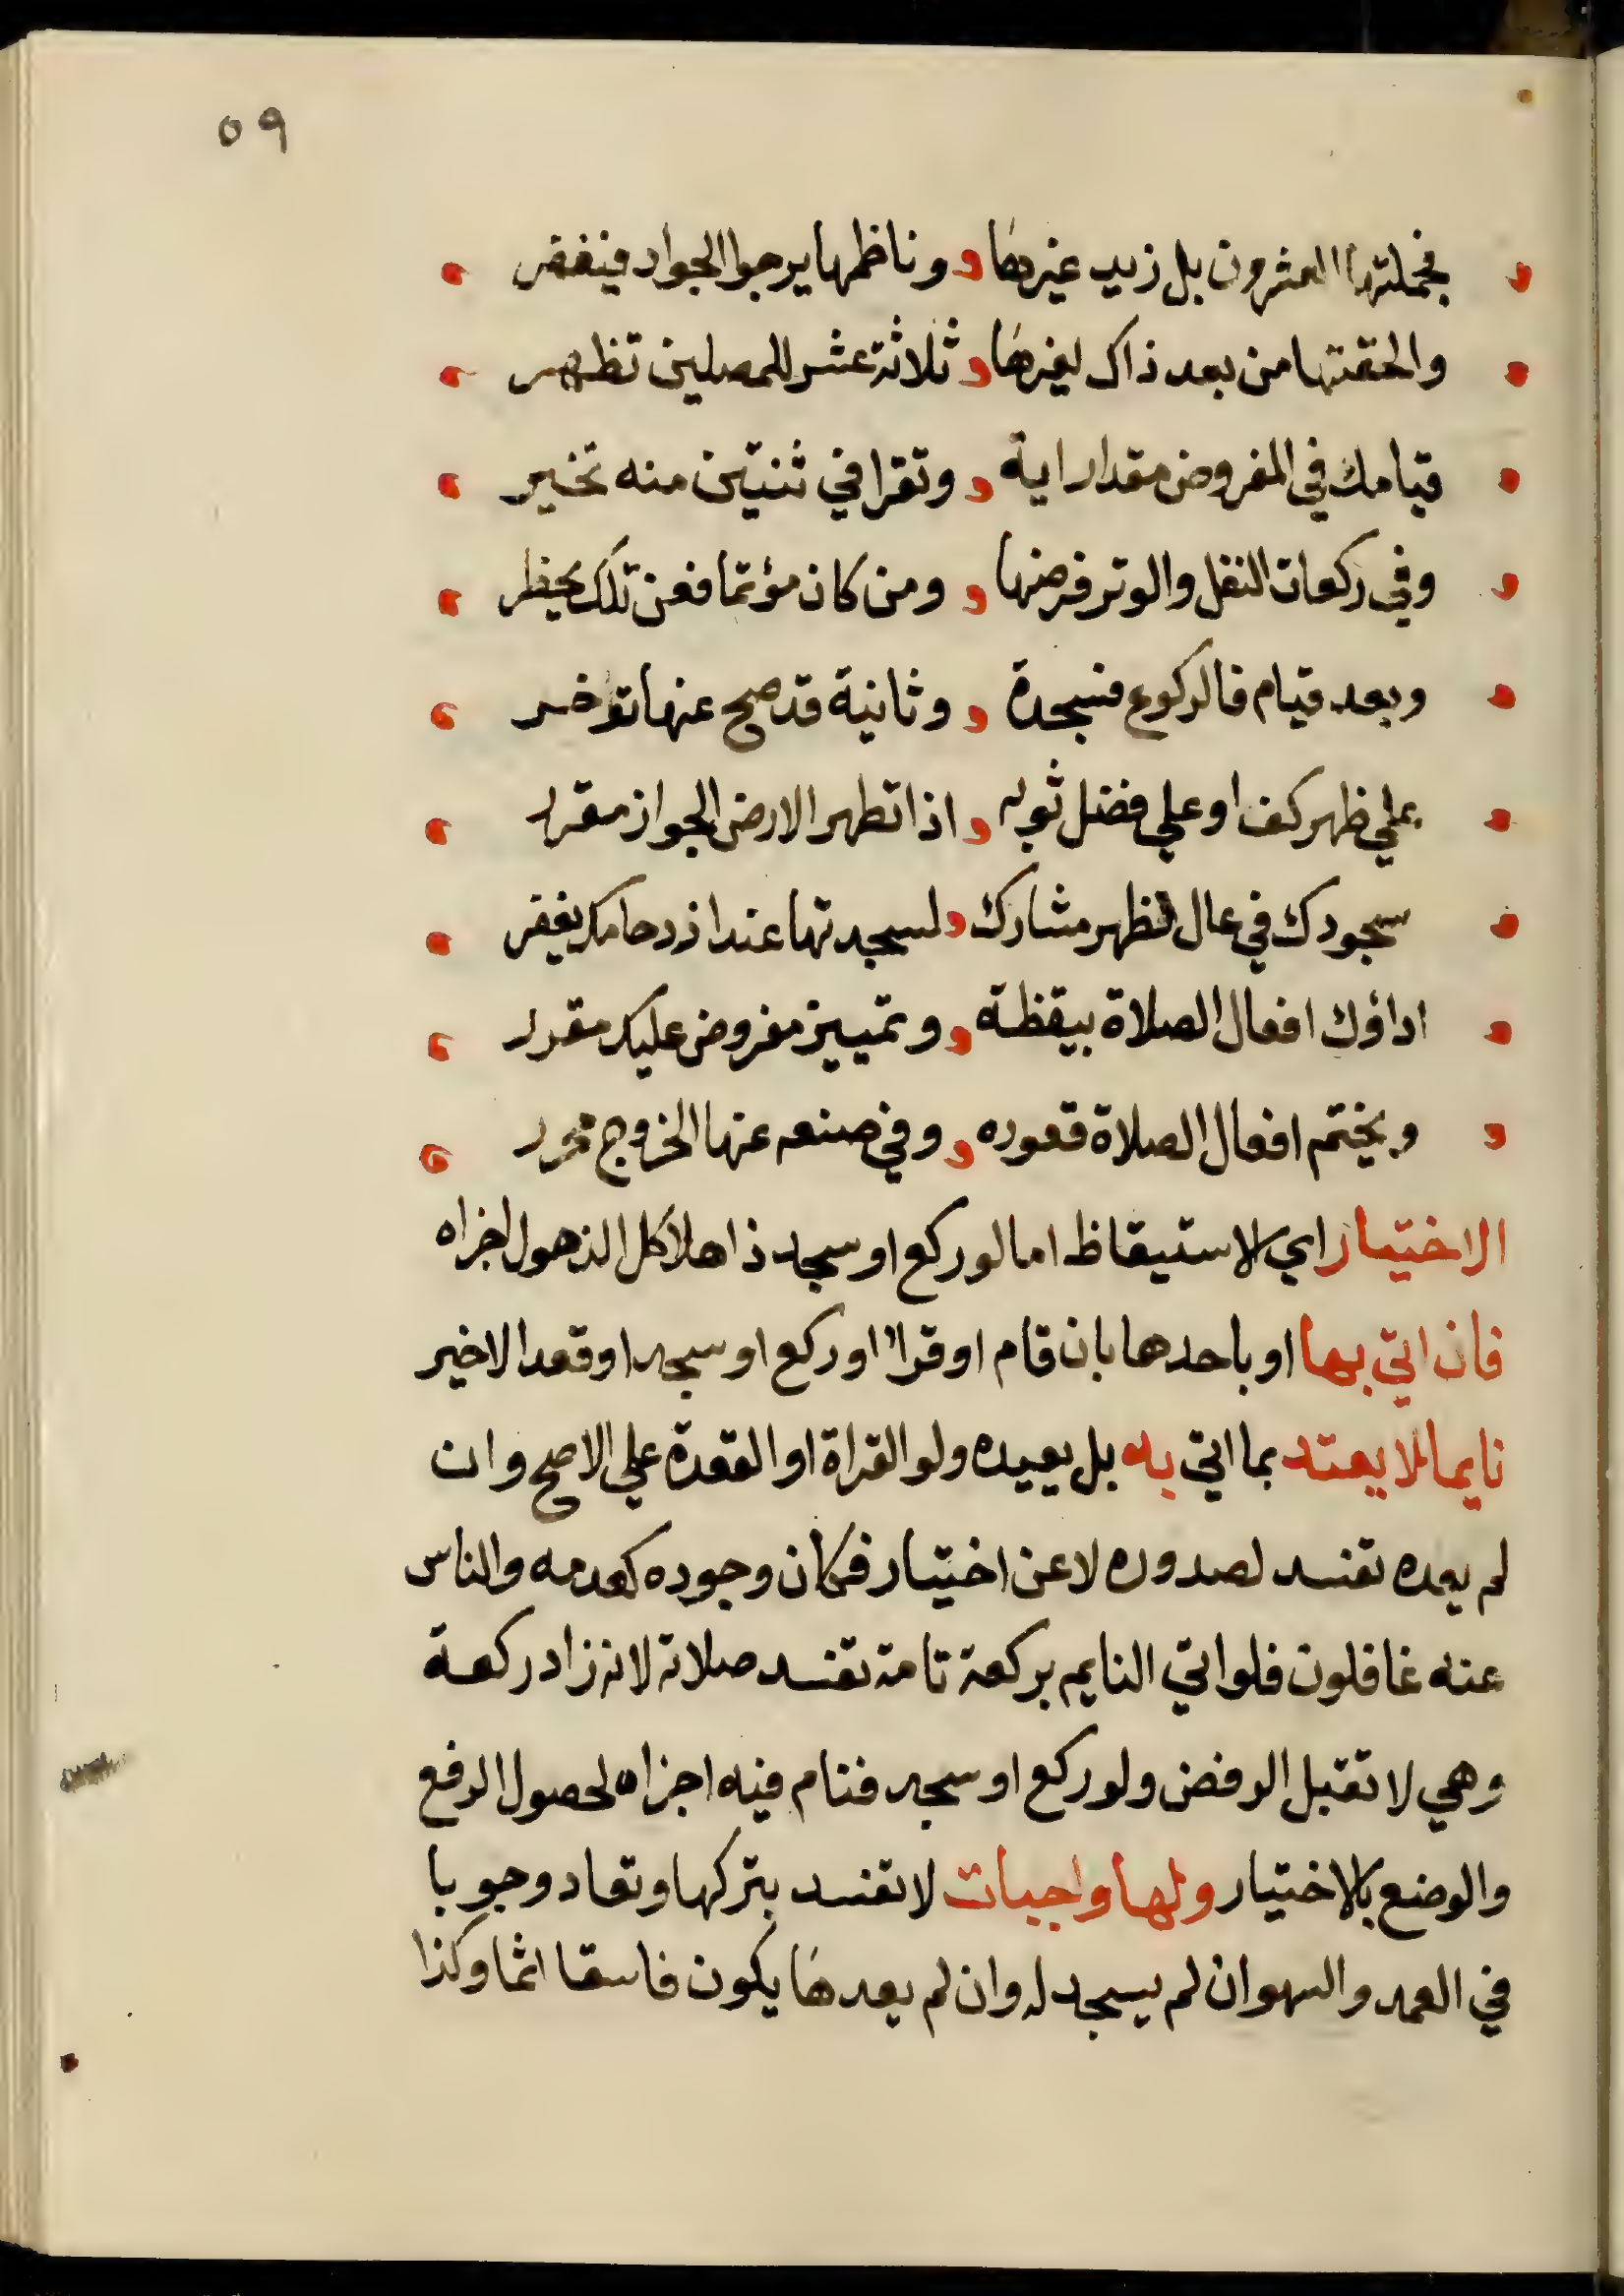 ٥٩
فجملتها العشرون بل زيد غيرها وناظمها يرجوا الجواد فيغفر
والحقتها من بعد ذاك لغيرها ثلاثة عشر للمصلين تظهر
قيامك في المفروض مقدار اية وتقرا في ثنتين منه تخير
وفي ركعات النفل والوتر فرضها ومن كان مؤتما فعن تلك يحظر
وبعد قيام فالركوع فسجدة وثانية قد صح عنها تؤخر
علي ظهر كف او علي فضل ثوبه اذا تطهر الارض الجواز مقرر
سجودك في عال فظهر مشارك لسجدتها عند ازدحامك يغفر
اداؤك افعال الصلاة بيقظة وتمييز مفروض عليك مقرر
ويختم افعال الصلاة قعوده وفي صنعه عنها الخروج محرر
الاختيار اي لاستيقاظ اما لو ركع او سجد ذاهلا كل الذهول اجزاه
فان اتي بها او باحدها بان قام او قرا او ركع او سجد او قعد الاخير
نايما لا يعتد بما اتي به بل يعيده ولو القراة او القعدة علي الاصح وان
لم يعده تفسد لصدوره لا عن اختيار فكان وجوده كعدمه والناس
عنه غافلون فلو اتي النايم بركعة تامة تفسد صلاته لانه زاد ركعة
وهي لا تقبل الرفض ولو ركع او سجد فنام فيه اجزاه لحصول الرفع
والوضع بالاختيار ولها واجبات لا تفسد بتركها وتعاد وجوبا
في العمد والسهو ان لم يسجد له وان لم يعدها يكون فاسقا اثما وكذا